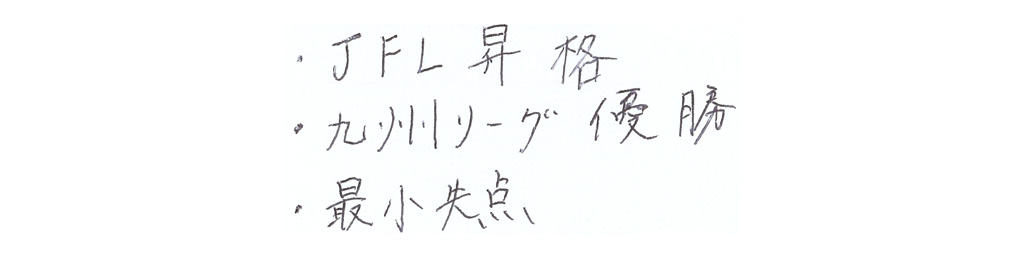 ・JFL昇格
・九州リーグ優勝
・最小失点